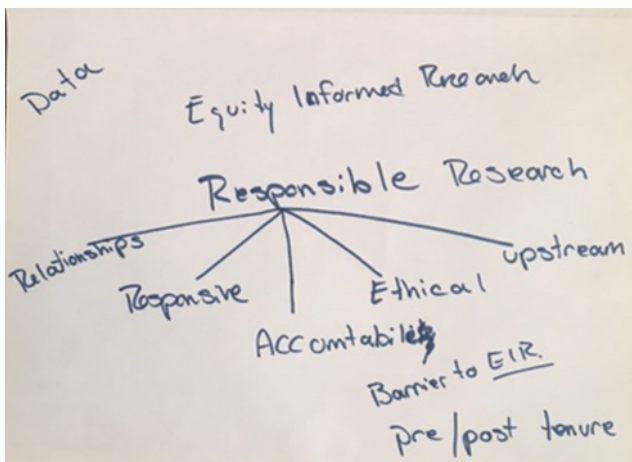 Data
Equity Informed Research
Responsible Research
Relationships
Responsive
Accountability
Ethical
upstream
Barrier to EIR.
pre/post tenure